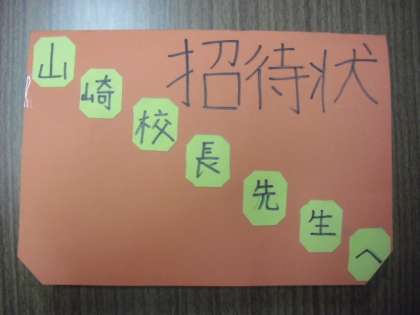 招待状
山崎校長先生へ